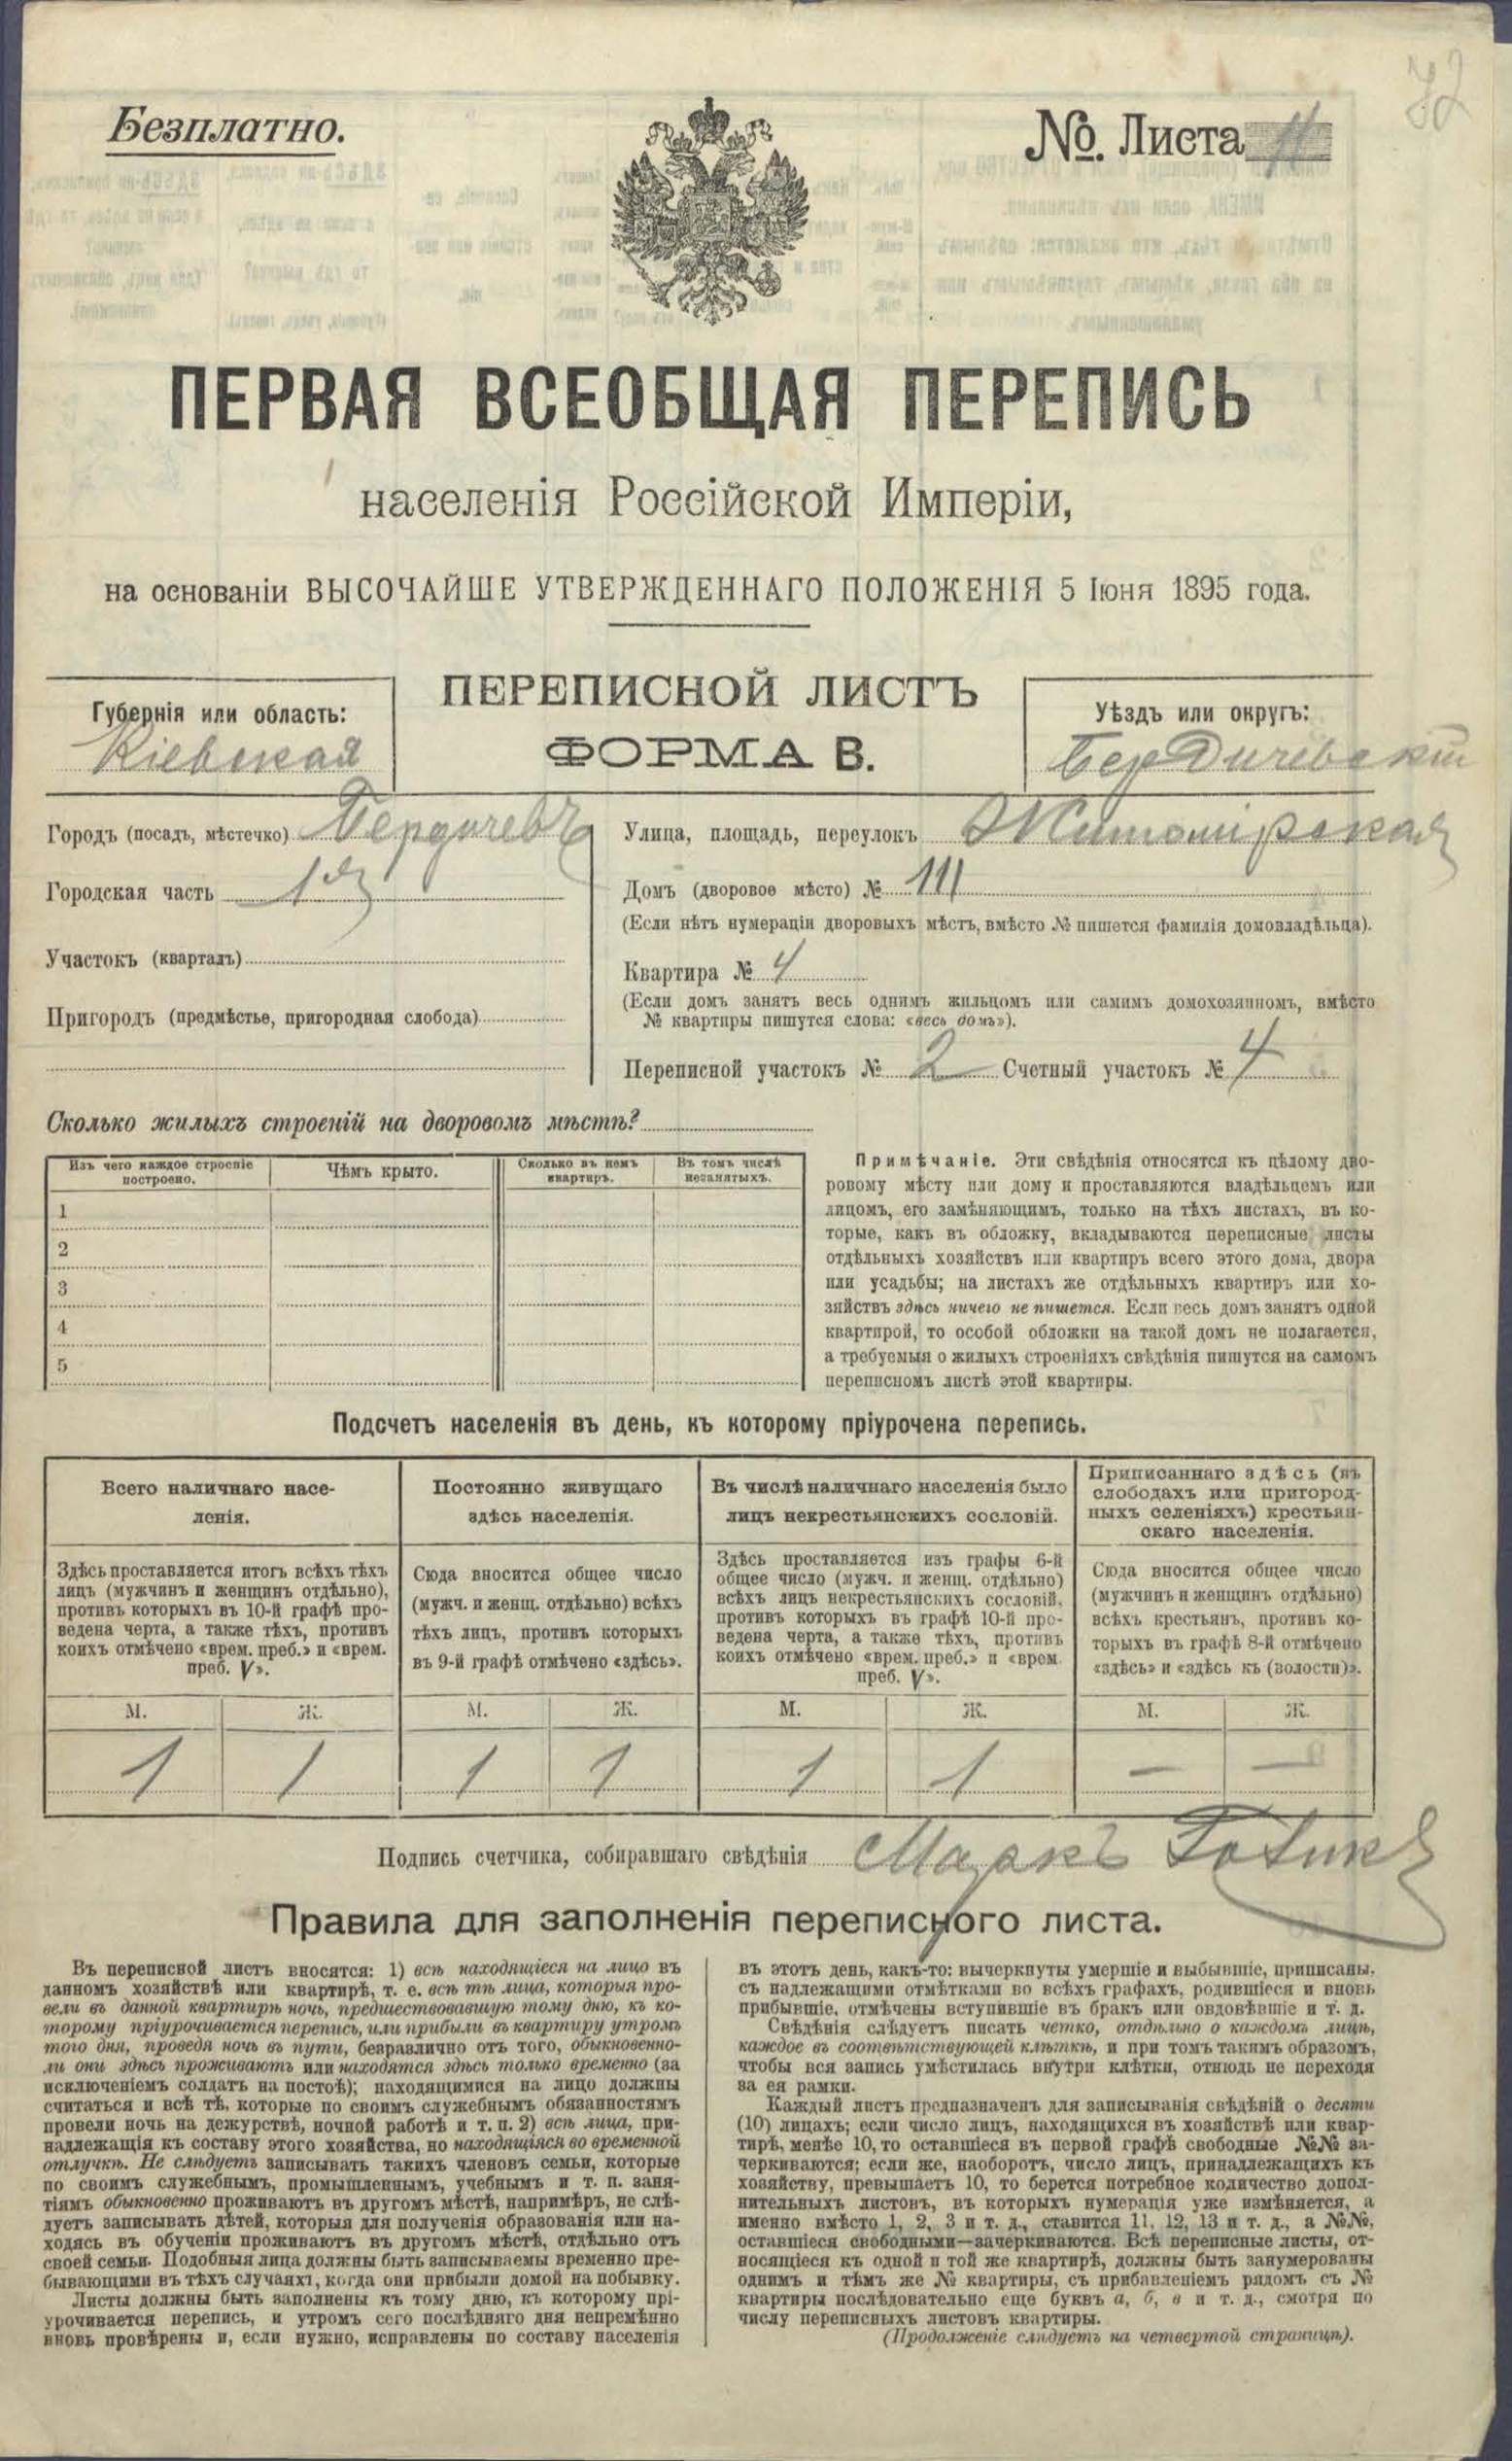 32
Безплатно.
№. Листа 4
ПЕРВАЯ ВСЕОБЩАЯ ПЕРЕПИСЬ
населенія Россійской Имперіи,
на основаніи ВЫСОЧАЙШЕ УТВЕРЖДЕННАГО ПОЛОЖЕНІЯ 5 Іюня 1895 года.
ПЕРЕПИСНОЙ ЛИСТЪ
ФОРМА В.
Губернія или область:
Кіевская
Уѣздъ или округъ:
Бердичевскій
Городъ (посадъ, мѣстечко) Бердичевъ
Городская часть 1я
Участокъ (кварталъ)
Пригородъ (предмѣстье, пригородная слобода)
Улица, площадь, переулокъ Житомірская
Домъ (дворовое мѣсто) № 111
(Если нѣтъ нумераціи дворовыхъ мѣстъ, вмѣсто № пишется фамилія домовладѣльца).
Квартира № 4
(Если домъ занятъ весь однимъ жильцомъ или самимъ домохозяиномъ, вмѣсто
№ квартиры пишутся слова: «весь домъ»).
Переписной участокъ № 2 Счетный участокъ № 4
Сколько жилыхъ строеній на дворовомъ мѣстѣ?
Изъ чего каждое строеніе построено.
Чѣмъ крыто.
Сколько въ немъ квартиръ.
Въ томъ числѣ незанятыхъ.
1
2
3
4
5
Примѣчаніе. Эти свѣдѣнія относятся къ цѣлому дво-
ровому мѣсту или дому и проставляются владѣльцемъ или
лицомъ, его замѣняющимъ, только на тѣхъ листахъ, въ ко-
торые, какъ въ обложку, вкладываются переписные листы
отдѣльныхъ хозяйствъ или квартиръ всего этого дома, двора
или усадьбы; на листахъ же отдѣльныхъ квартиръ или хо-
зяйствъ здѣсь ничего не пишется. Если весь домъ занятъ одной
квартирой, то особой обложки на такой домъ не полагается,
а требуемыя о жилыхъ строеніяхъ свѣдѣнія пишутся на самомъ
переписномъ листѣ этой квартиры.
Подсчетъ населенія въ день, къ которому пріурочена перепись.
Всего наличнаго насе-
ленія.
Постоянно живущаго
здѣсь населенія.
Въ числѣ наличнаго населенія было
лицъ некрестьянскихъ сословій.
Приписаннаго здѣсь (въ
слободахъ или пригород-
ныхъ селеніяхъ) крестьян-
скаго населенія.
Здѣсь проставляется итогъ всѣхъ тѣхъ
лицъ (мужчинъ и женщинъ отдѣльно),
противъ которыхъ въ 10-й графѣ про-
ведена черта, а также тѣхъ, противъ
коихъ отмѣчено «врем. преб.» и «врем.
преб. V».
Сюда вносится общее число
(мужч. и женщ. отдѣльно) всѣхъ
тѣхъ лицъ, противъ которыхъ
въ 9-й графѣ отмѣчено «здѣсь».
Здѣсь проставляется изъ графы 6-й
общее число (мужч. и женщ. отдѣльно)
всѣхъ лицъ некрестьянскихъ сословій,
противъ которыхъ въ графѣ 10-й про-
ведена черта, а также тѣхъ, противъ
коихъ отмѣчено «врем. преб.» и «врем
преб. V».
Сюда вносится общее число
(мужчинъ и женщинъ отдѣльно)
всѣхъ крестьянъ, противъ ко-
торыхъ въ графѣ 8-й отмѣчено
«здѣсь» и «здѣсь къ (волости)».
М. Ж. М. Ж. М. Ж. М. Ж.
1 1 1 1 1 1 — —
Подпись счетчика, собиравшаго свѣдѣнія Маркъ
Правила для заполненія переписного листа.
Въ переписной листъ вносятся: 1) всѣ находящіеся на лицо въ
данномъ хозяйствѣ или квартирѣ, т. е. всѣ тѣ лица, которыя про-
вели въ данной квартирѣ ночь, предшествовавшую тому дню, къ ко-
торому пріурочивается перепись, или прибыли въ квартиру утромъ
того дня, проведя ночь въ пути, безразлично отъ того, обыкновенно-
ли они здѣсь проживаютъ или находятся здѣсь только временно (за
исключеніемъ солдатъ на постоѣ); находящимися на лицо должны
считаться и всѣ тѣ, которые по своимъ служебнымъ обязанностямъ
провели ночь на дежурствѣ, ночной работѣ и т. п. 2) всѣ лица, при-
надлежащія къ составу этого хозяйства, но находящіяся во временной
отлучкѣ. Не слѣдуетъ записывать такихъ членовъ семьи, которые
по своимъ служебнымъ, промышленнымъ, учебнымъ и т. п. заня-
тіямъ обыкновенно проживаютъ въ другомъ мѣстѣ, напримѣръ, не слѣ-
дуетъ записывать дѣтей, которыя для полученія образованія или на-
ходясь въ обученіи проживаютъ въ другомъ мѣстѣ, отдѣльно отъ
своей семьи. Подобныя лица должны быть записываемы временно пре-
бывающими въ тѣхъ случаяхъ, когда они прибыли домой на побывку.
Листы должны быть заполнены къ тому дню, къ которому прі-
урочивается перепись, и утромъ сего послѣдняго дня непремѣнно
вновь провѣрены и, если нужно, исправлены по составу населенія
въ этотъ день, какъ-то: вычеркнуты умершіе и выбывшіе, приписаны,
съ надлежащими отмѣтками во всѣхъ графахъ, родившіеся и вновь
прибывшіе, отмѣчены вступившіе въ бракъ или овдовѣвшіе и т. д.
Свѣдѣнія слѣдуетъ писать четко, отдѣльно о каждомъ лицѣ,
каждое въ соотвѣтствующей клѣткѣ, и при томъ такимъ образомъ,
чтобы вся запись умѣстилась внутри клѣтки, отнюдь не переходя
за ея рамки.
Каждый листъ предназначенъ для записыванія свѣдѣній о десяти
(10) лицахъ; если число лицъ, находящихся въ хозяйствѣ или квар-
тирѣ, менѣе 10, то оставшіеся въ первой графѣ свободные №№ за-
черкиваются; если же, наоборотъ, число лицъ, принадлежащихъ къ
хозяйству, превышаетъ 10, то берется потребное количество допол-
нительныхъ листовъ, въ которыхъ нумерація уже измѣняется, а
именно вмѣсто 1, 2, 3 и т. д., ставится 11, 12, 13 и т. д., а №№,
оставшіеся свободными—зачеркиваются. Всѣ переписные листы, от-
носящіеся къ одной и той же квартирѣ, должны быть занумерованы
однимъ и тѣмъ же № квартиры, съ прибавленіемъ рядомъ съ №
квартиры послѣдовательно еще буквъ а, б, в и т. д., смотря по
числу переписныхъ листовъ квартиры.
(Продолженіе слѣдуетъ на четвертой страницѣ).